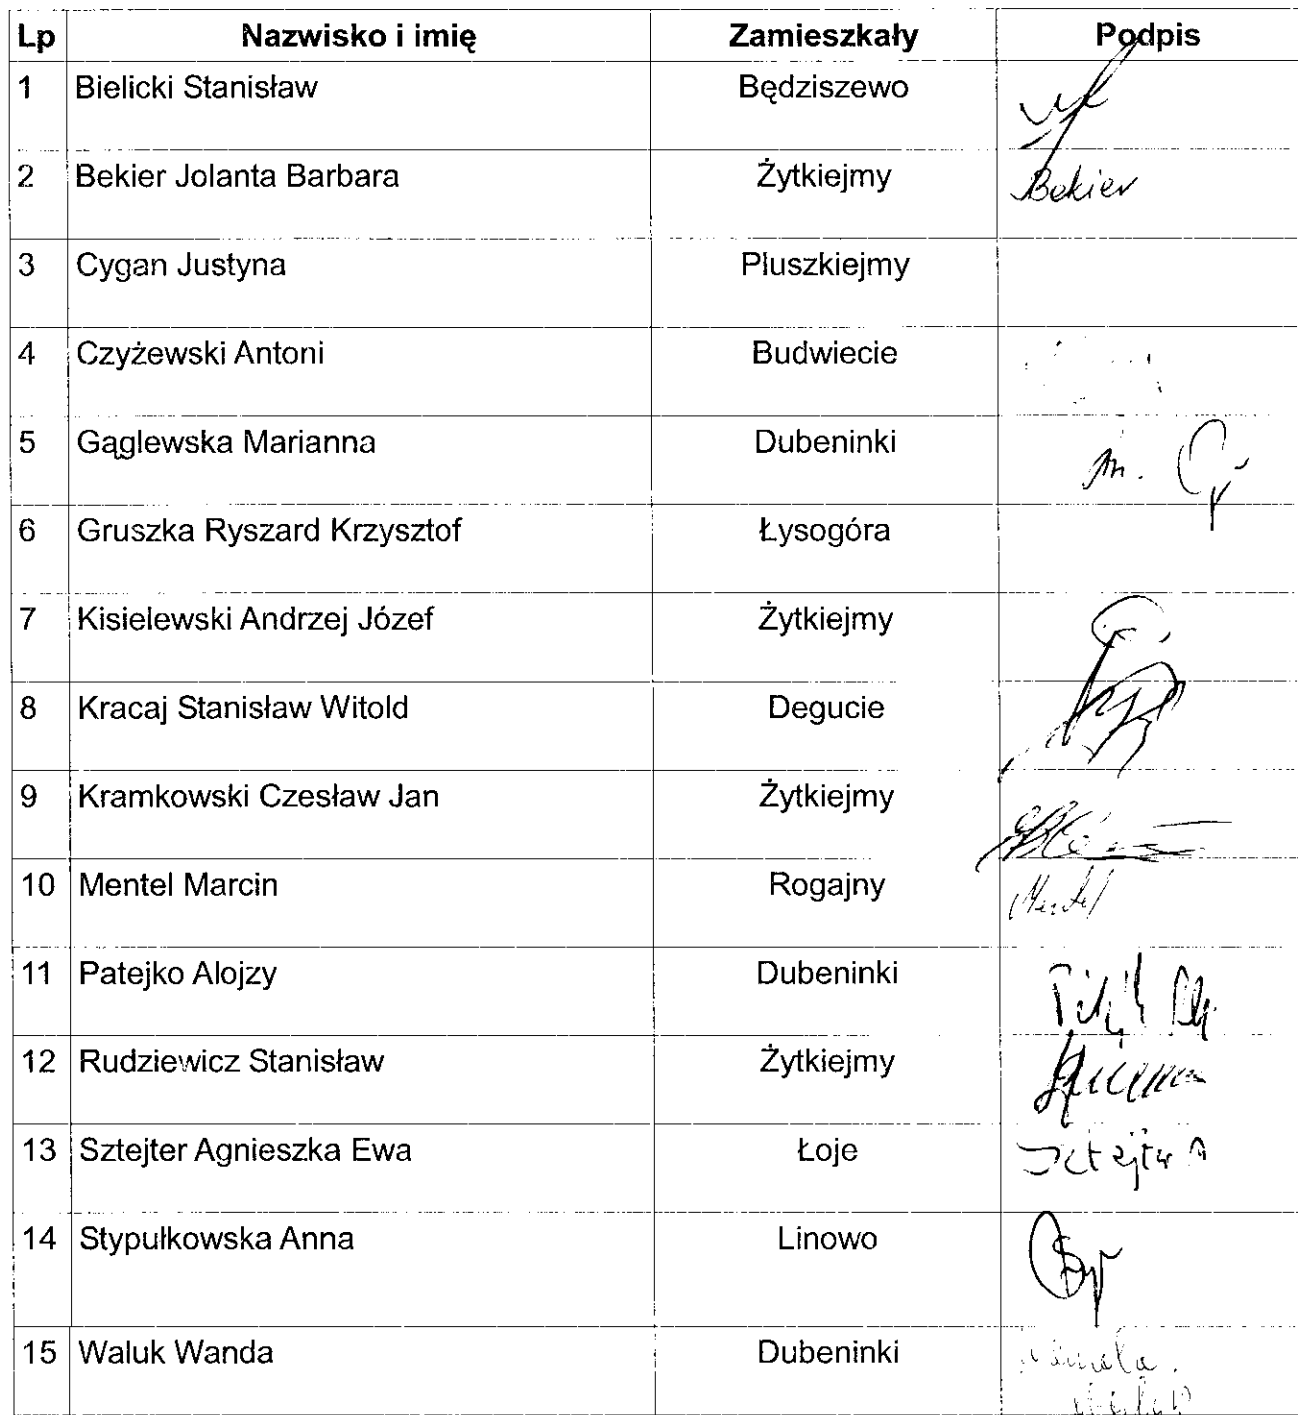 Lp Nazwisko i imię Zamieszkały Podpis
1 Bielicki Stanisław Będziszewo
2 Bekier Jolanta Barbara Żytkiejmy Bekier
3 Cygan Justyna Pluszkiejmy
4 Czyżewski Antoni Budwiecie
5 Gąglewska Marianna Dubeninki m.
6 Gruszka Ryszard Krzysztof Łysogóra
7 Kisielewski Andrzej Józef Żytkiejmy
8 Kracaj Stanisław Witold Degucie
9 Kramkowski Czesław Jan Żytkiejmy
10 Mentel Marcin Rogajny Mentel
11 Patejko Alojzy Dubeninki
12 Rudziewicz Stanisław Żytkiejmy
13 Sztejter Agnieszka Ewa Łoje Sztejter A
14 Stypułkowska Anna Linowo
15 Waluk Wanda Dubeninki